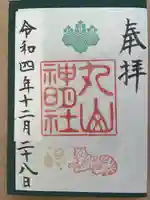 奉拝
丸山
神明社
令和四年十二月二十八日